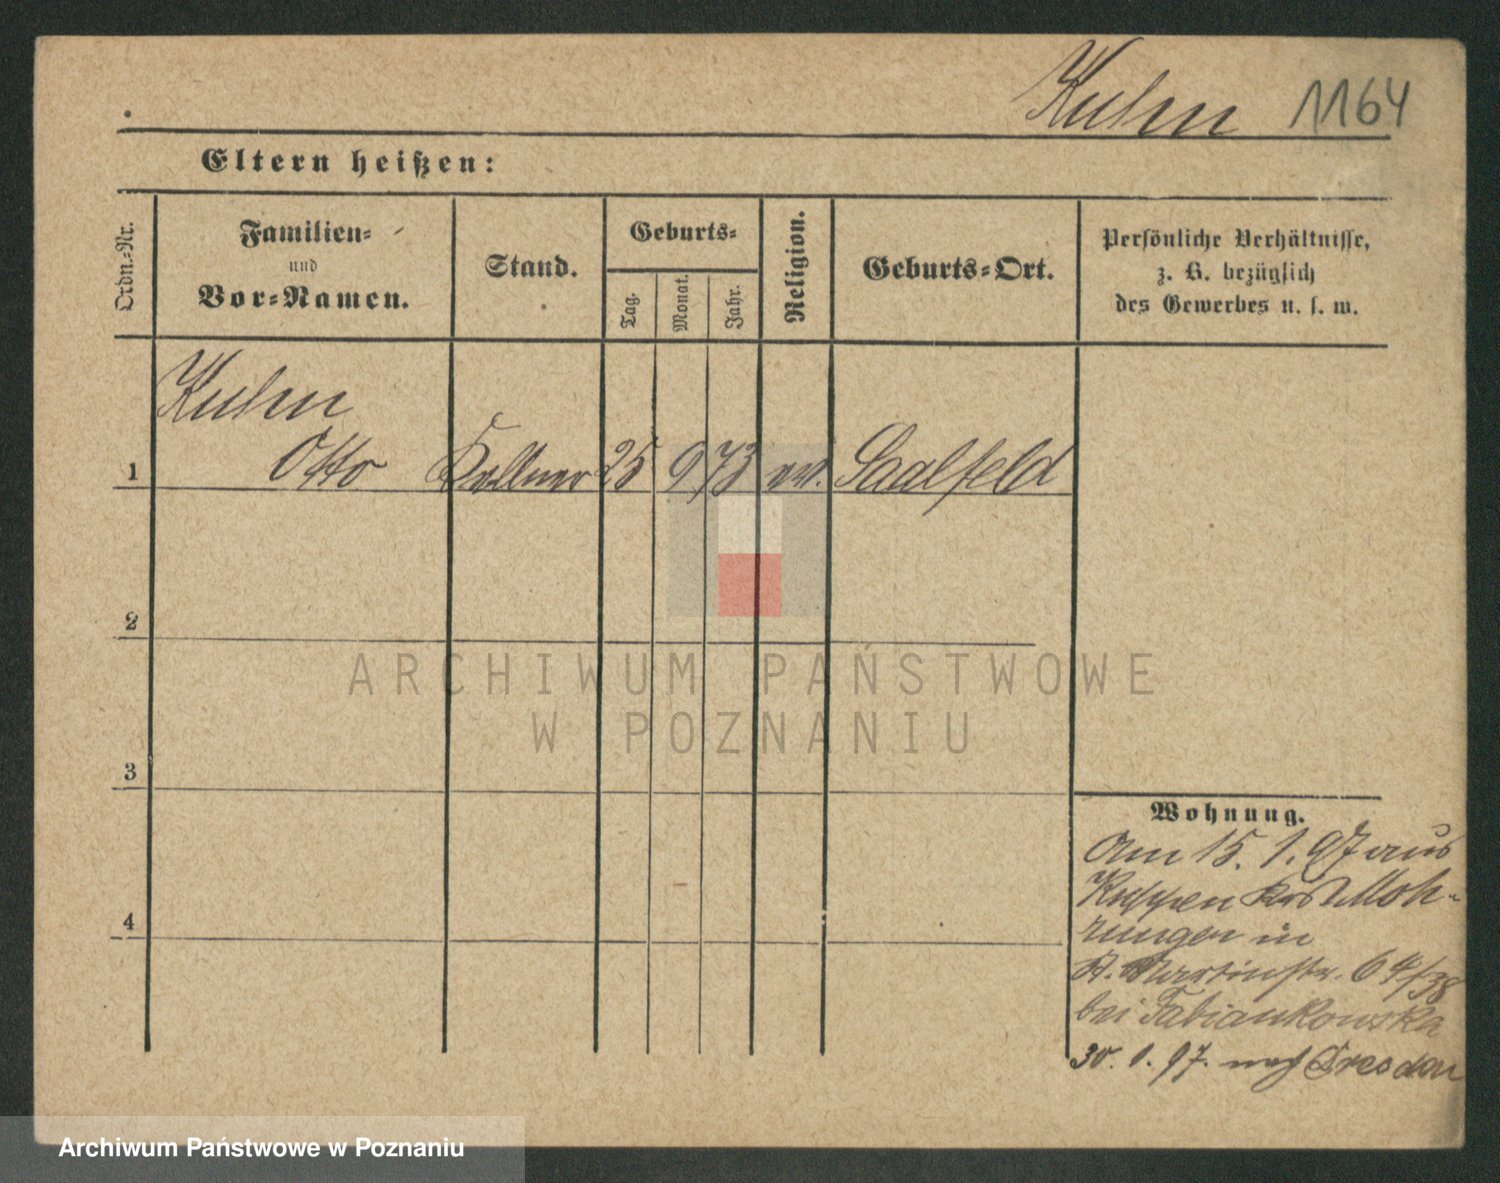 Kuhn 1164
Eltern heißen:
Ordn.-Nr.
Familien-
und
Vor-Namen.
Stand.
Geburts-
Tag.
Monat.
Jahr.
Religion.
Geburts-Ort.
Persönliche Verhältnisse,
z. B. bezüglich
des Gewerbes u. s. w.
Kuhn
1 Otto Kellner 25 9 73 ev. Saalfeld
2
ARCHIWUM PAŃSTWOWE
W POZNANIU
3
4
Wohnung.
Am 15. 1. 97 aus
Kuppen Krs Moh-
rungen in
St. Martinstr. 64/38
bei Fabiankowska
30. 1. 97. nach Dresden
Archiwum Państwowe w Poznaniu